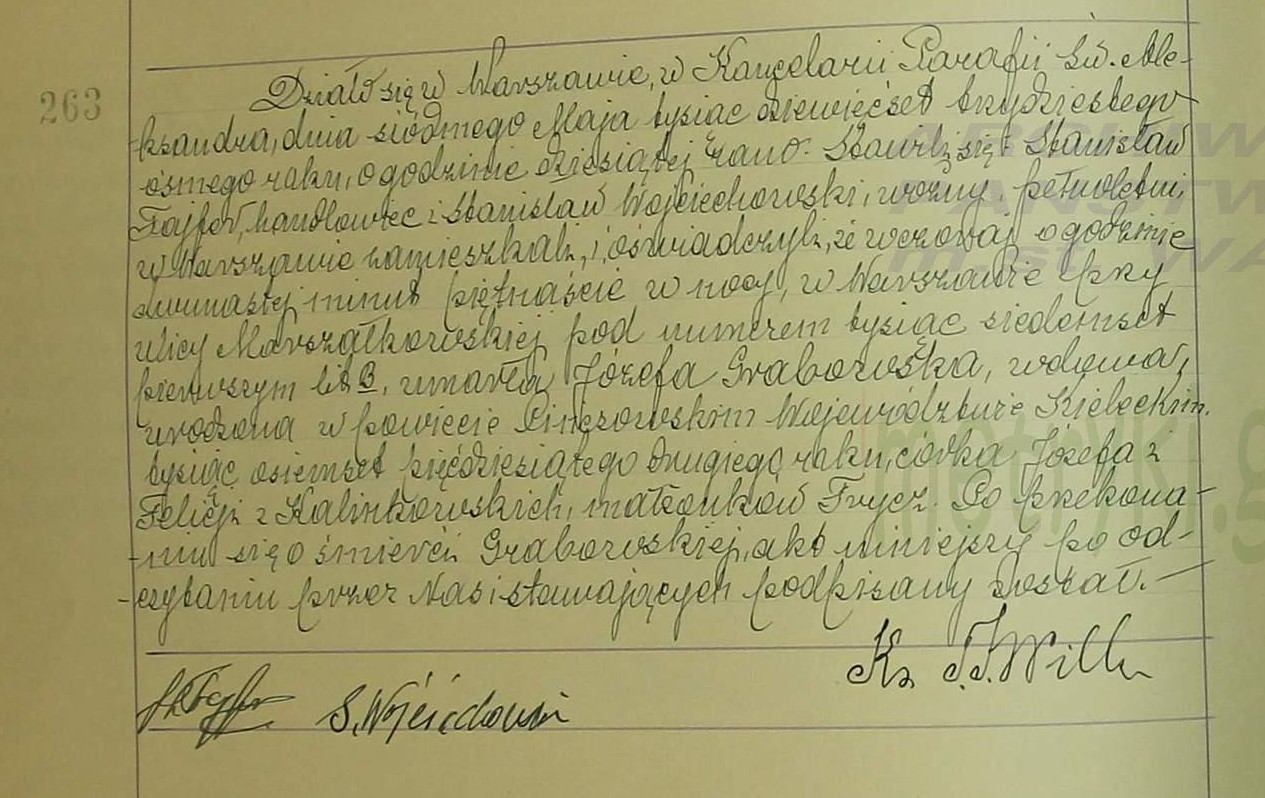 263
Działo się w Warszawie, w Kancelarii Parafii Św. Ale-
-ksandra, dnia siódmego Maja tysiąc dziewięćset trzydziestego
ósmego roku, o godzinie dziesiątej rano. Stawili się: Stanisław
Fajfer, handlowiec i Stanisław Wojciechowski, woźny, pełnoletni,
w Warszawie zamieszkali, i oświadczyli, że wczoraj o godzinie
dwunastej minut piętnaście w nocy, w Warszawie przy
ulicy Marszałkowskiej pod numerem tysiąc siedemset
pierwszym lit B, umarła Józefa Grabowska, wdowa,
urodzona w powiecie Pińczowskim Województwie Kieleckim
tysiąc osiemset pięćdziesiątego drugiego roku, córka Józefa i
Felicji z Kalinkowskich, małżonków Frycz. Po przekona-
-niu się o śmierci Grabowskiej, akt niniejszy po od-
-czytaniu przez Nas i stawających podpisany został.
Ks. J. J. Will
S. Wojciechowski
ARCHIW
PAŃSTW
m.st. WA
metryki.g